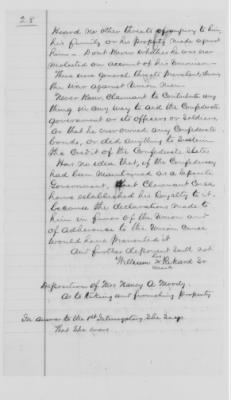 28
Heard no other threats of injury to him,
his family or his property made against
him - Dont Know whether he was ever
molested on account of his Unionism -
There were general threats prevalent during
the war against Union Men.
Never Knew Claimant to Contribute any
thing in any way to aid the Confederate
government or its officers or Soldiers,
or that he ever owned any Confederate
bonds, or did anything to Sustain
the Credit of the Confederate States
Has no idea that, if the Confederacy
had been Maintained as a Separate
Government, that Claimant Could
have established his loyalty to it.
because the declarations made to
him in favor of the Union and
of Adherence to the Union Cause
would have prevented it.
And further deponent Saith not
his
William X Rickard Sr
mark
Deposition of Mrs Nancy A Moody
As to taking and furnishing property
In answer to the 1st Interrogatory She Says
That She was